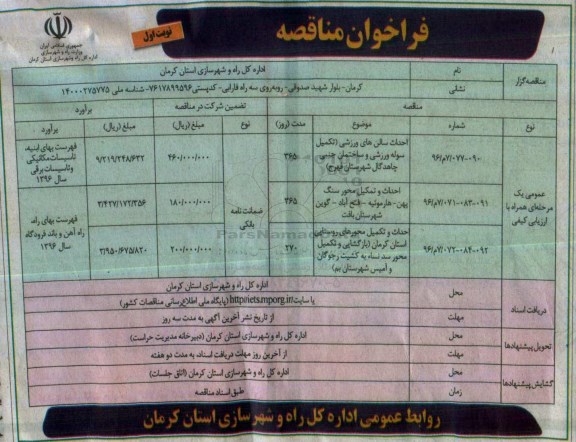 جمهوری اسلامی ایران
وزارت راه و شهرسازی
اداره کل راه و شهرسازی استان کرمان
فراخوان مناقصه
نوبت اول
مناقصه‌گزار
نام
اداره کل راه و شهرسازی استان کرمان
نشانی
کرمان- بلوار شهید صدوقی- روبه‌روی سه راه فارابی- کدپستی ۷۶۱۷۸۹۹۵۹۶- شناسه ملی ۱۴۰۰۰۲۷۵۷۷۵
مناقصه
تضمین شرکت در مناقصه
برآورد
نوع
شماره
موضوع
مدت (روز)
نوع
مبلغ (ریال)
مبلغ (ریال)
برآورد
عمومی یک
مرحله‌ای همراه با
ارزیابی کیفی
۹۶/م/۷/۰۷۷-۰۹۰
احداث سالن های ورزشی (تکمیل
سوله ورزشی و ساختمان جنبی
چاهدگال شهرستان فهرج)
۳۶۵
ضمانت نامه
بانکی
۴۶۰/۰۰۰/۰۰۰
۹/۲۱۹/۲۴۸/۶۳۲
فهرست بهای ابنیه،
تاسیسات مکانیکی
وتاسیسات برقی
سال ۱۳۹۶
۹۶/م/۷/۰۷۱-۰۸۳-۰۹۱
احداث و تمکیل محور سنگ
پهن- هارمونیه - فتح آباد - گوین
شهرستان بافت
۳۶۵
۱۸۰/۰۰۰/۰۰۰
۳/۴۲۷/۱۷۲/۳۵۶
فهرست بهای راه،
راه آهن و باند فرودگاه
سال ۱۳۹۶
۹۶/م/۷/۰۷۲-۰۸۴-۰۹۲
احداث و تکمیل محورهای روستایی
استان کرمان (بازگشایی و تکمیل
محور سد نساء به کشیت رجوگان
و آمیس شهرستان بم)
۲۷۰
۲۰۰/۰۰۰/۰۰۰
۳/۹۵۰/۶۷۵/۸۲۰
دریافت اسناد
محل
اداره کل راه و شهرسازی استان کرمان
یا سایت http://iets.mporg.ir (پایگاه ملی اطلاع رسانی مناقصات کشور)
مهلت
از تاریخ نشر آخرین آگهی به مدت سه روز
تحویل پیشنهادها
محل
اداره کل راه و شهرسازی استان کرمان (دبیرخانه مدیریت حراست)
مهلت
از آخرین روز مهلت دریافت اسناد، به مدت دو هفته
گشایش پیشنهادها
محل
اداره کل راه و شهرسازی استان کرمان (اتاق جلسات)
زمان
طبق اسناد مناقصه
روابط عمومی اداره کل راه و شهرسازی استان کرمان